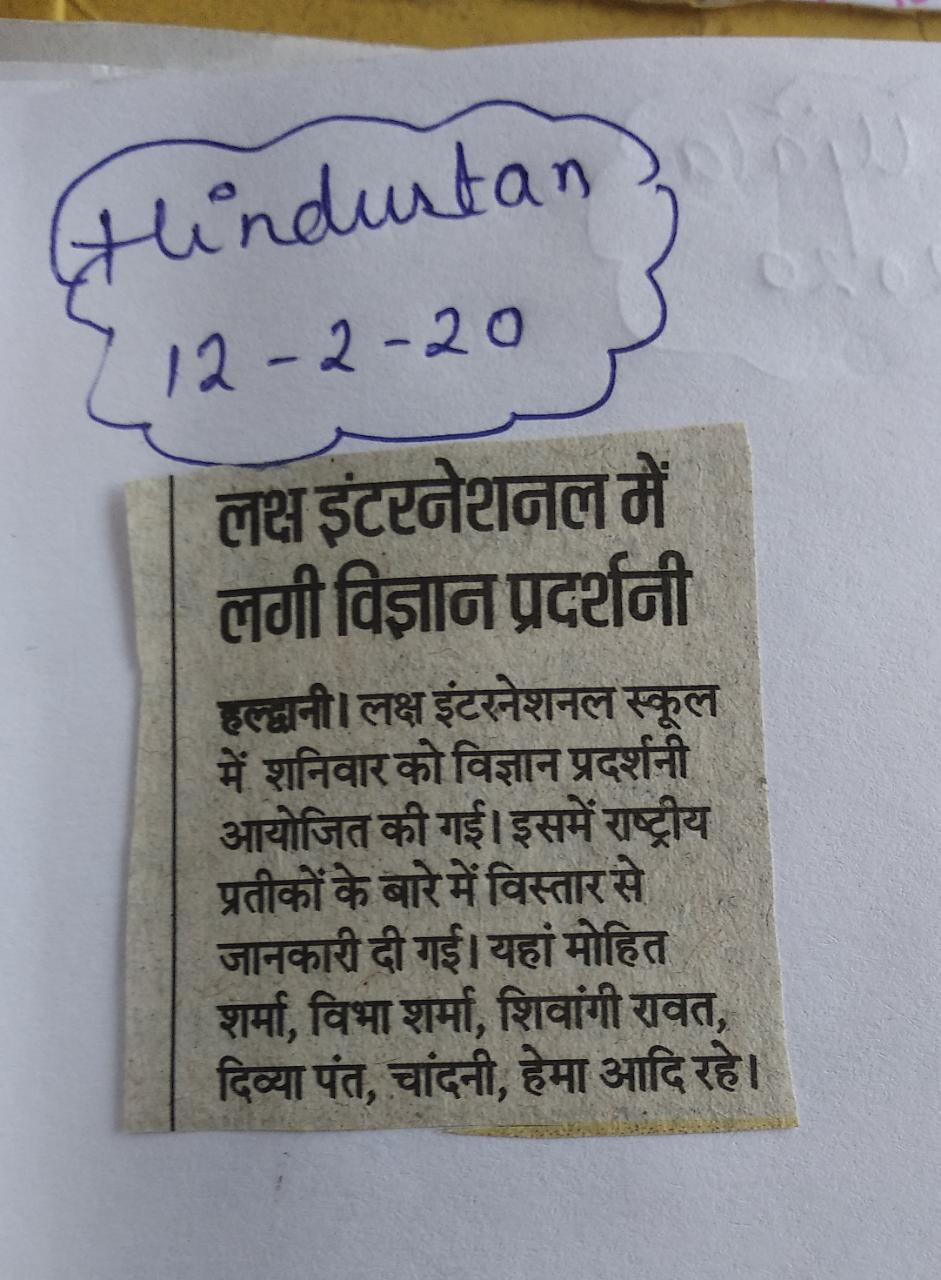 Hindustan
12-2-20
लक्ष इंटरनेशनल में
लगी विज्ञान प्रदर्शनी
हल्द्वानी। लक्ष इंटरनेशनल स्कूल
में शनिवार को विज्ञान प्रदर्शनी
आयोजित की गई। इसमें राष्ट्रीय
प्रतीकों के बारे में विस्तार से
जानकारी दी गई। यहां मोहित
शर्मा, विभा शर्मा, शिवांगी रावत,
दिव्या पंत, चांदनी, हेमा आदि रहे।